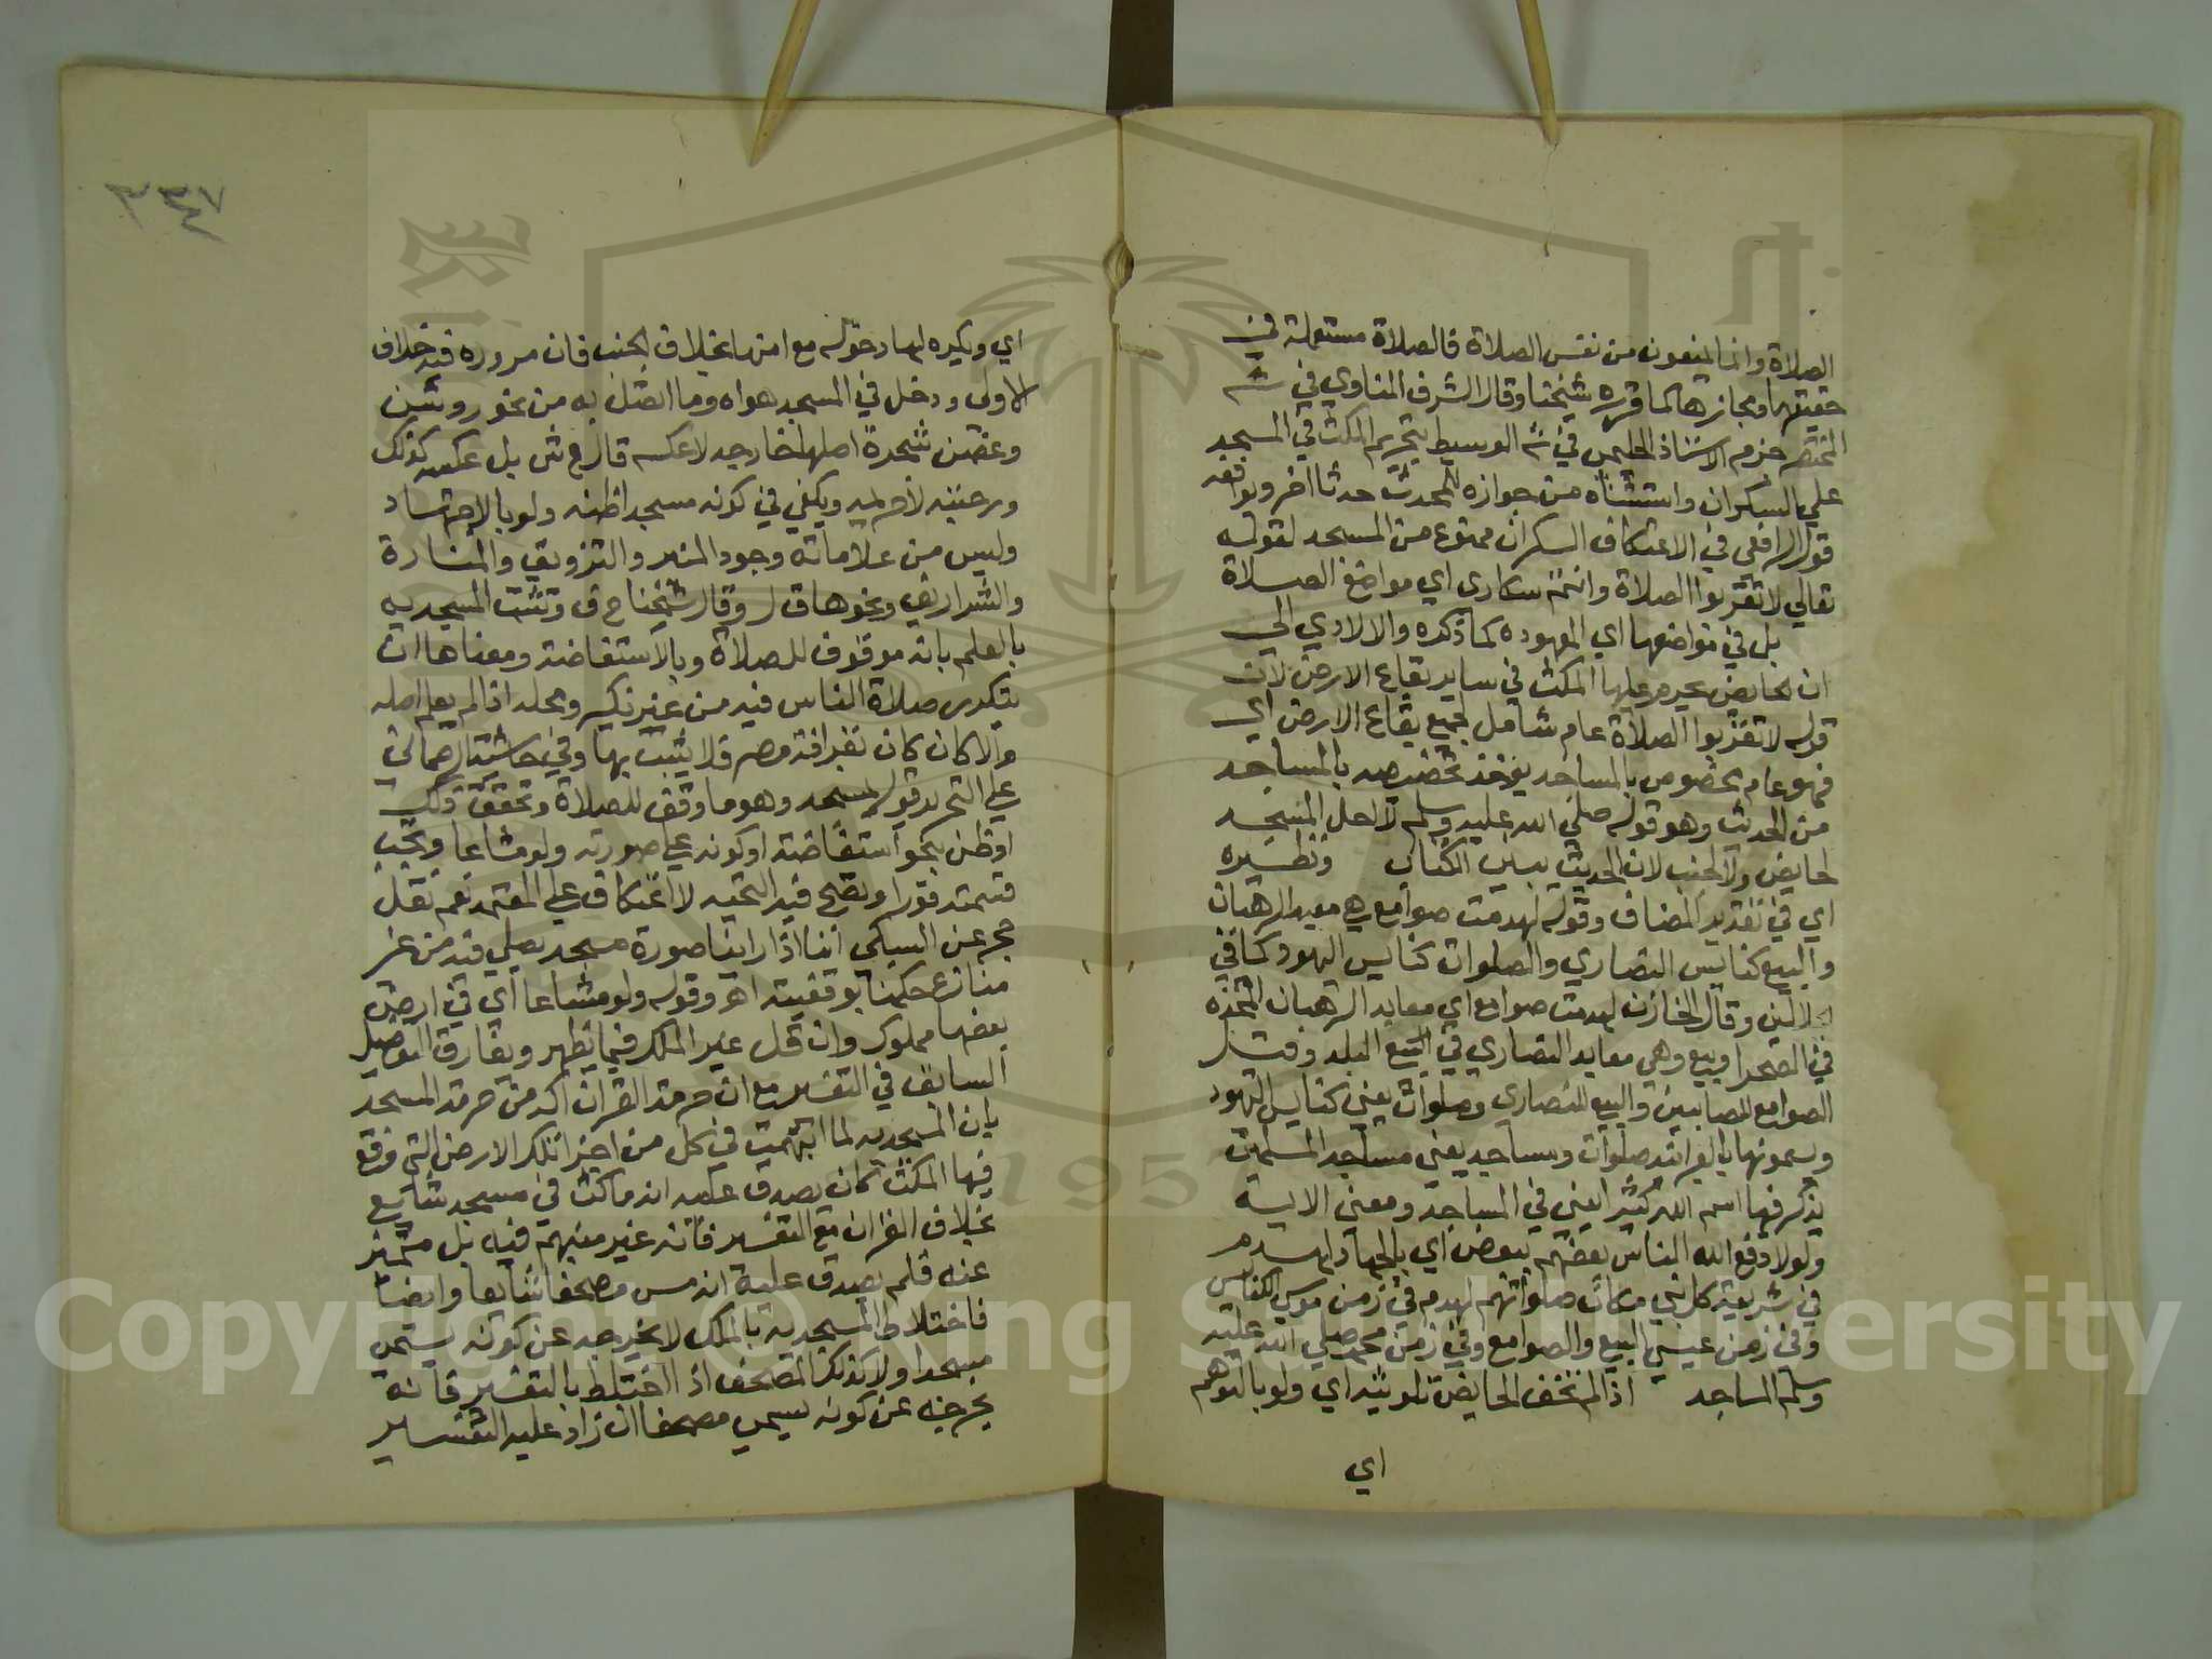 الصلاة وانما الممنعون من نفس الصلاة فالصلاة مستعملة في
حقيقتها ومجازها كما قرره شيخنا وقال الشرف المناوي في شرح
المختصر جزم الاستاذ الحلبي في شرح الوسيط بتحريم المكث في المسجد
علي السكران واستثناه من جوازه للمحدث حدثا اخر ويوافقه
قول الرافعي في الاعتكاف السكران ممنوع من المسجد لقوله
تعالي لا تقربوا الصلاة وانتم سكارى اي مواضع الصلاة
بل في مواضعها اي المعهوده كما ذكره والا لادي الي
ان الحايض يحرم عليها المكث في ساير بقاع الارض لان
قوله لا تقربوا الصلاة عام شامل لجميع بقاع الارض اي
فهو عام مخصوص بالمساجد يوخذ تخصيصه بالمساجد
من الحديث وهو قوله صلي الله عليه وسلم لا احل المسجد
لحايض ولا لجنب لان الحديث يبين الكتاب ونظيره
اي في تقدير المضاف وقوله لهدمت صوامع هي معبد الرهبان
والبيع كنايس النصاري والصلوات كنايس اليهود كما في
الجلالين وقال الخازن لهدمت صوامع اي معابد الرهبان المتخذه
في الصحرا وبيع وهي معابد النصاري في البلد وقيل
الصوامع للصابيين والبيع للنصاري وصلوات يعني كنايس اليهود
ويسمونها بالعبرانية صلوات ومساجد يعني مساجد المسلمين
يذكر فيها اسم الله كثيرا يعني في المساجد ومعنى الاية
ولولا دفع الله الناس بعضهم ببعض اي بالجهاد لهدم
في شريعة كل نبي مكان صلواتهم لهدم في زمن موسي الكنايس
وفي زمن عيسي البيع والصوامع وفي زمن محمد صلي الله عليه
وسلم المساجد اذا لم تخف الحايض تلويثه اي ولو بالتوهم
اي
٣٣٧
٤
اي ويكره لها دخوله مع امنها بخلاف الجنب فان مروره فيه خلاف
الاولى ودخل في المسجد هواه وما اتصل به من نحو روشن
وغصن شجرة اصلها خارجه لا عكسه قال ع ش بل عكسه كذلك
ورحبته لا حريمه ويكفي في كونه مسجدا ظنه ولو بالاجتهاد
وليس من علاماته وجود المنبر والتزويق والمنارة
والشراريف ونحوها ق ل وقال شيخنا ح ف وتثبت المسجديه
بالعلم بانه موقوف للصلاة وبالاستفاضة ومعناها ان
يتكرر صلاة الناس فيه من غير نكير ومحله اذا لم يعلم اصله
والا كان كان بقرافة مصر فلا يثبت بها وفي حاشية الرحماني
علي التحرير قوله بمسجد وهو ما وقف للصلاة وتحقق ذلك
او ظن بنحو استفاضة او كونه علي صورته ولو مشاعا وتجب
قسمته فورا وتصح فيه التحيه لا اعتكاف علي المعتمد نعم نقل
حج عن السبكي اننا اذا راينا صورة مسجد يصلي فيه من غير
منازع حكمنا بوقفيته اهـ وقوله ولو مشاعا اي في ارض
بعضها مملوك وان قل غير الملك فيما يظهر ويفارق التفصيل
السابق في التفسير مع ان حرمة القران اكد من حرمة المسجد
بان المسجديه لما ابهمت في كل من اجزا تلك الارض التي وقع
فيها المكث كان يصدق عليه انه ماكث في مسجد شايع
بخلاف القران مع التفسير فانه غير مبهم فيه بل متميز
عنه فلم يصدق عليه انه مس مصحفا شايعا وايضا
فاختلاط المسجدية بالملك لا يخرجه عن كونه يسمي
مسجدا ولا كذلك المصحف اذا اختلط بالتفسير فانه
يخرجه عن كونه يسمي مصحفا ان زاد عليه التفسير
Copyright © King Saud University
195